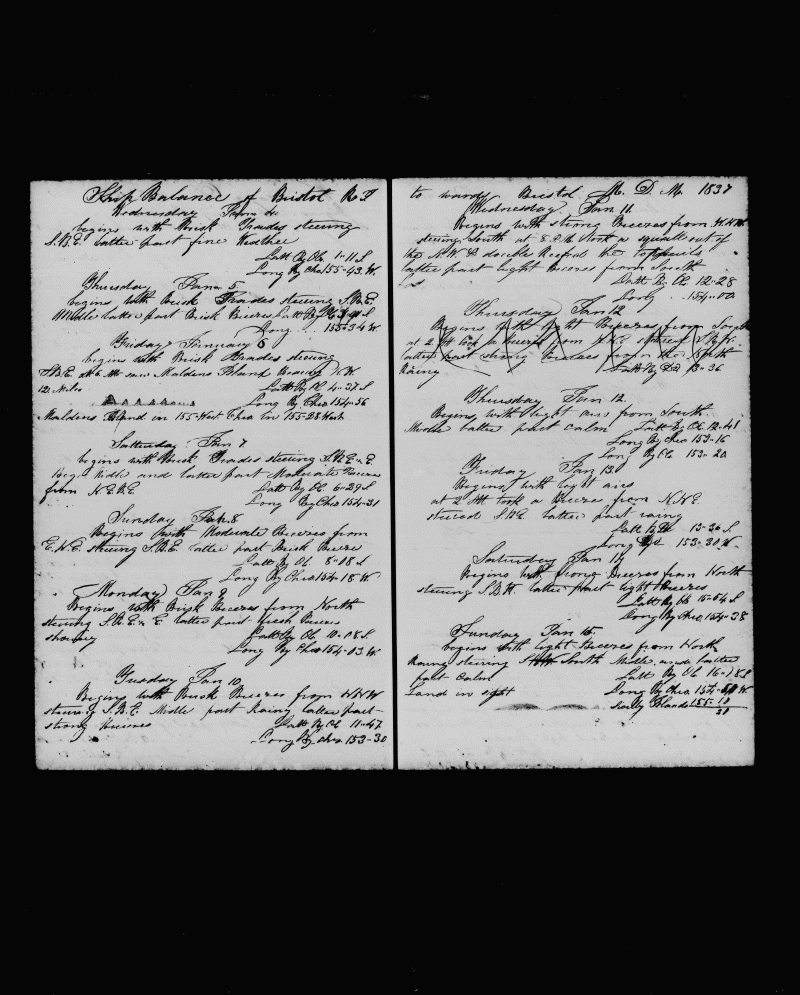 Ship Balance of Bristol R I
Wednesday Jan 4
begins with Brisk Trades steering
S.B.E. latter part fine Weather
Latt By Ob 1-11 S
Long By Chro 155-43. W
Thursday Jan 5
begins with Brisk Trades steering S.B.E.
Middle latter part Brisk Breezes Latt By Ob
Long 155-34 W
Friday January 6
begins with Brisk Trades steering
S.B.E. at 6 AM saw Maldens Island Bearing W
12 Miles Latt By Ob 4-37 S
Long By Chro 154-56
Maldens Island in 155 West Chro in 155-28 West
Saturday Jan 7
begins with Brisk Trades steering S.B.E.
Middle and latter part Moderate Breezes
from N.E.B.E Latt By Ob 6-29 S
Long By Chro 154-31
Sunday Jan 8
Begins with Moderate Breezes from
E.N.E. steering S.B.E. latter part Brisk Breeze
Latt By Ob 8-18 S
Long By Chro 154-18 W
Monday Jan 9
Begins with Brisk Breezes from North
steering S.B.E. latter part fresh Breezes
Latt By Ob 10-18 S
Long By Chro 154-03 W
Tuesday Jan 10
Begins with Brisk Breezes from NNW
steering S.B.E. Middle part Rainy latter part
strong Breezes Latt By Ob 11-47
Long By Chro 153-30
to wards Bristol M. D. M. 1837
Wednesday Jan 11
Begins with strong Breezes from N.N.W.
steering South at 8 P.M took a squall out of
the N.W. & double Reefed the topsails
latter part light Breezes from South
Latt By Ob 12-28
Long 154-00
Thursday Jan 12
Begins with light Breezes from South
at 2 AM took a Breeze from N.E. steered
latter part strong Breezes from the North
Rainy Latt By DR 13-36
Thursday Jan 12
Begins with light airs from South
Middle latter part calm Latt By Ob 12-41
Long By Chro 153-16
Long By Ob 153-20
Friday Jan 13
Begins with light airs
at 2 AM took a Breeze from N.N.E.
steered S.B.E. latter part rainy
Latt 13-36 S
Long 153-30 W
Saturday Jan 14
Begins with strong Breezes from North
steering S.B.W. latter part light Breezes
Latt By Ob 15-54 S
Long By Chro 154-38
Sunday Jan 15
begins with light Breezes from North
Rainy steering South Middle and latter
part Calm Latt By Ob 16-18 S
Land in sight Long By Chro
Islands 155-10